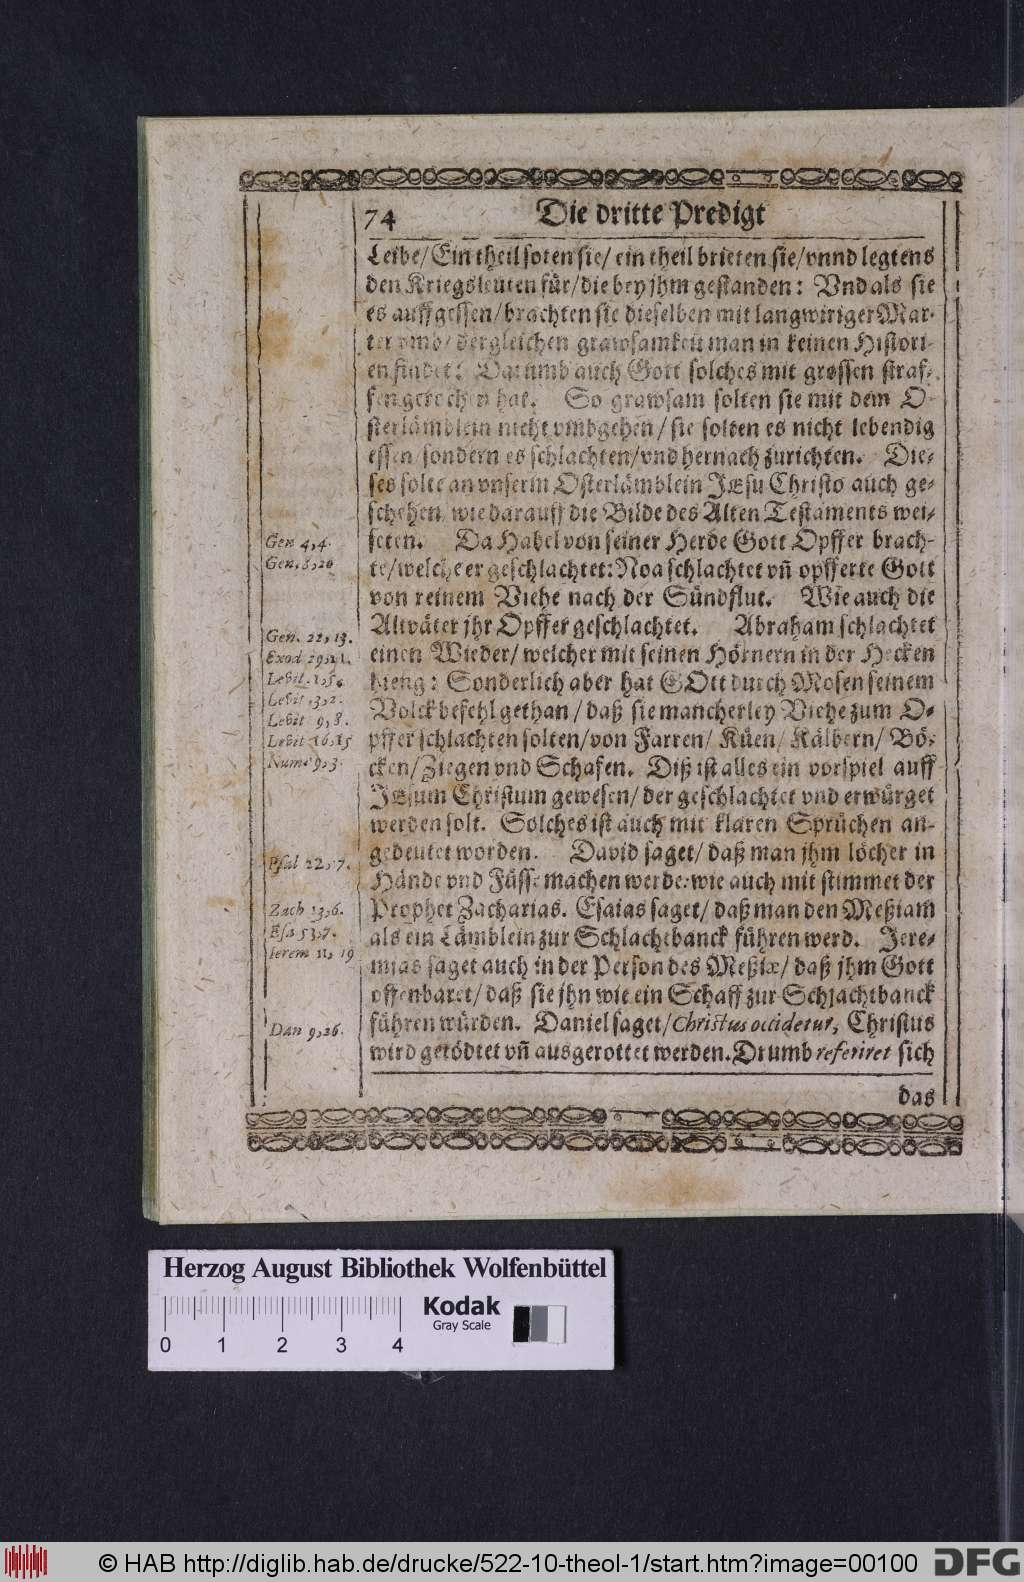 74 Die dritte Predigt
Leibe/ Ein theil soten sie/ ein theil brieten sie/ vnnd legtens
den Kriegsleuten für/ die bey jhm gestanden: Vnd als sie
es auffgessen/ brachten sie dieselben mit langwiriger Mar-
ter vmb/ dergleichen grawsamkeit man in keinen Histori-
en findet: Darumb auch Gott solches mit grossen straf-
fen gerochen hat. So grawsam solten sie mit dem O-
sterlämblein nicht vmbgehen/ sie solten es nicht lebendig
essen/ sondern es schlachten/ vnd hernach zurichten. Die-
ses solte an vnserm Osterlämblein JEsu Christo auch ge-
schehen/ wie darauff die Bilde des Alten Testaments wei-
seten. Da Habel von seiner Herde Gott Opffer brach-
te/ welche er geschlachtet: Noa schlachtet vñ opfferte Gott
von reinem Viehe nach der Sündflut. Wie auch die
Altväter jhr Opffer geschlachtet. Abraham schlachtet
einen Wieder/ welcher mit seinen Hörnern in der Hecken
hieng: Sonderlich aber hat GOtt durch Mosen seinem
Volck befehl gethan/ daß sie mancherley Viehe zum O-
pffer schlachten solten/ von Farren/ Küen/ Kälbern/ Bö-
cken/ Ziegen vnd Schafen. Diß ist alles ein vorspiel auff
JEsum Christum gewesen/ der geschlachtet vnd erwürget
werden solt. Solches ist auch mit klaren Sprüchen an-
gedeutet worden. David saget/ daß man jhm löcher in
Hände vnd Füsse machen werde: wie auch mit stimmet der
Prophet Zacharias. Esaias saget/ daß man den Meßiam
als ein Lämblein zur Schlachtbanck führen werd. Jere-
mias saget auch in der Person des Meßiæ/ daß jhm Gott
offenbaret/ daß sie jhn wie ein Schaff zur Schlachtbanck
führen würden. Daniel saget/ Christus occidetur, Christus
wird getödtet vñ ausgerottet werden. Drumb referiret sich
das
Gen 4,4.
Gen. 8,20
Gen. 22,13.
Exod 29,11.
Levit. 1,5.
Levit. 3,2.
Levit 9,8.
Levit 16,15
Num. 9,3.
Psal 22,17.
Zach 13,6.
Esa 53,7.
Ierem 11,19
Dan 9,26.
Herzog August Bibliothek Wolfenbüttel
Kodak
Gray Scale
0 1 2 3 4
© HAB http://diglib.hab.de/drucke/522-10-theol-1/start.htm?image=00100
DFG